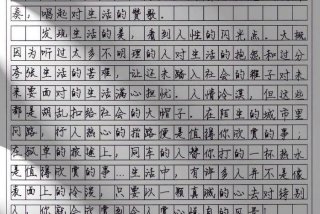 奏，唱起对生活的赞歌。
生活的美，看到人性的闪光点。大概
因为听过太多不明理的人对生活的抱怨和过分
夸张生活的苦难，让还未踏入社会的雏子对未
来要面对的生活满心担忧。人情冷漠，但这些
都是胡乱扣给社会的大帽子。在陌生的城市里
问路，行人热心的指路便是值得你欣赏的事；
在孤单的旅途上，同车的人替你打的一杯热水
是值得欣赏的事…生活中，有许多人并不是像
表面上的冷漠，只要以一颗真诚的心去对待别
人，你就会欣赏到令人